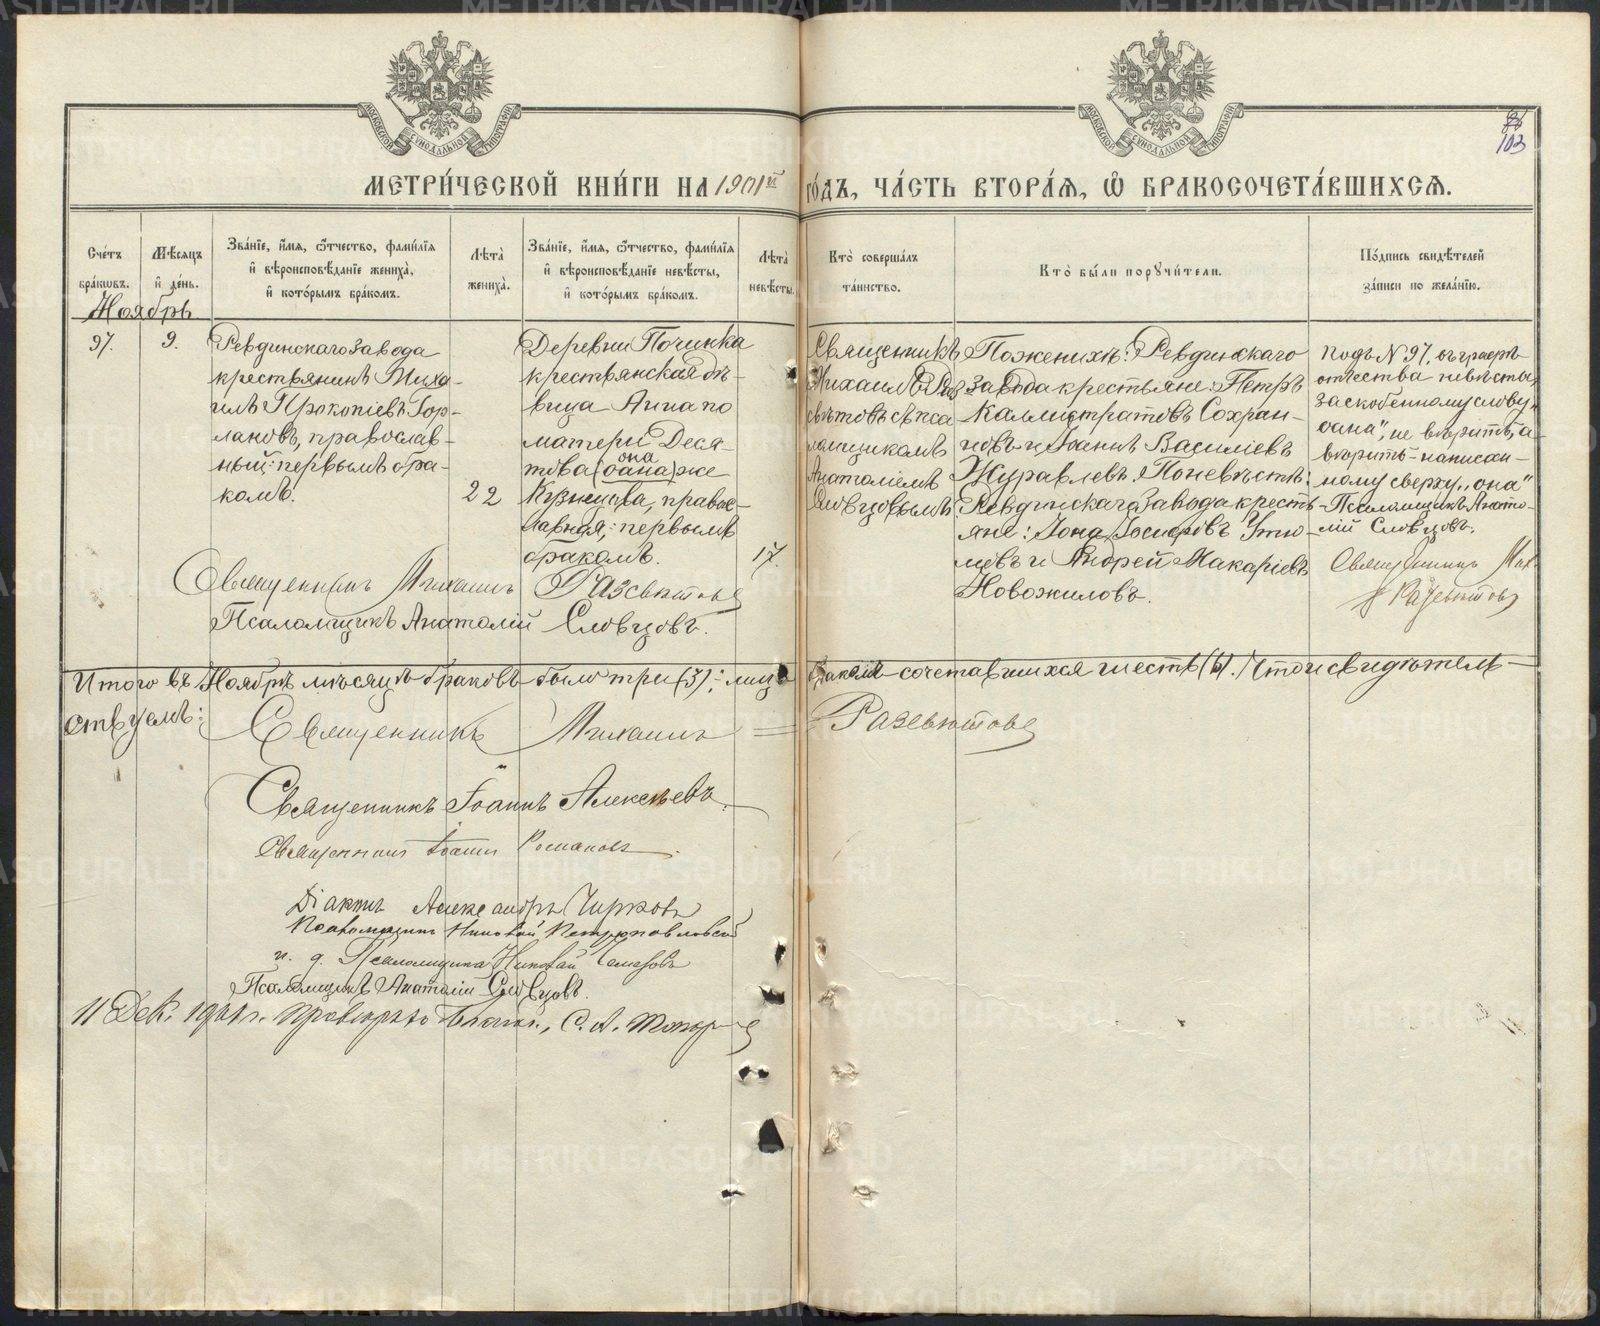 МЕТРИ́ЧЕСКОЙ КНИ́ГИ НА 1901й ГО́ДЪ, ЧА́СТЬ ВТОРА́Я, Ѽ БРАКОСОЧЕТА́ВШИХСЯ.
103
Сче́тъ бра́кωвъ.
Мѣ́сяцъ и҆ де́нь.
Зва́нїе, и҆́мя, ѻ҆́тчество, фами́лїя и҆ вѣроисповѣ́данїе жениха̀, и҆ кото́рымъ бра́комъ.
Лѣ́та̀ жениха̀.
Зва́нїе, и҆́мя, ѻ҆́тчество, фами́лїя и҆ вѣроисповѣ́данїе невѣ́сты, и҆ кото́рымъ бра́комъ.
Лѣ́та̀ невѣ́сты.
Кто̀ соверша́лъ та́инство.
Кто̀ бы́ли порꙋчи́тели.
По́дпись свидѣ́телей за́писи по жела́нїю.
Ноябрь
97.
9.
Ревдинскаго завода
крестьянинъ Миха-
илъ Прокопіевъ Гор-
лановъ, православ-
ный: первымъ бра-
комъ.
22
Деревни Починка
крестьянская дѣ-
вица Анна по
матери Деся-
това (оана) же
она
Кузнецова, правос-
лавная; первымъ
бракомъ.
17.
Священникъ
Михаилъ Раз
свѣтовъ съ пса
ломщикомъ
Анатоліемъ
Словцовымъ
По женихѣ: Ревдинскаго
завода крестьяне: Петръ
Каллистратовъ Сохран-
новъ и Іоаннъ Василіевъ
Журавлевъ. По невѣстѣ:
Ревдинскаго завода кресть
яне: Іона Іосифовъ Утю-
мовъ и Андрей Макаріевъ
Новожиловъ.
Подъ N 97. въ графѣ
отчества невѣсты
заскобенному слову „
оана", не вѣрить, а
вѣрить написан-
ному сверху „она"
-Псаломщикъ Анато-
лій Словцовъ.
Священникъ Мих.
Разсвѣтовъ
Священникъ Михаилъ Разсвѣтовъ
Псаломщикъ Анатолій Словцовъ.
Итого въ Ноябрѣ мѣсяцѣ браковъ было три (3); лицъ бракомъ сочетавшихся шесть (6). Что и свидѣтель-
ствуемъ:
Священникъ Михаилъ = Разсвѣтовъ
Священникъ Іоаннъ Алексѣевъ.
Священникъ Іоаннъ Романовъ.
Діаконъ Александръ Чирковъ
Псаломщикъ Николай Петропавловскій
и. д. Псаломщика Николай
Псаломщикъ Анатолій Словцовъ.
11 Дек. 1901 г. провѣрялъ Благоч., С. А.
METRIKI.GASO-URAL.RU